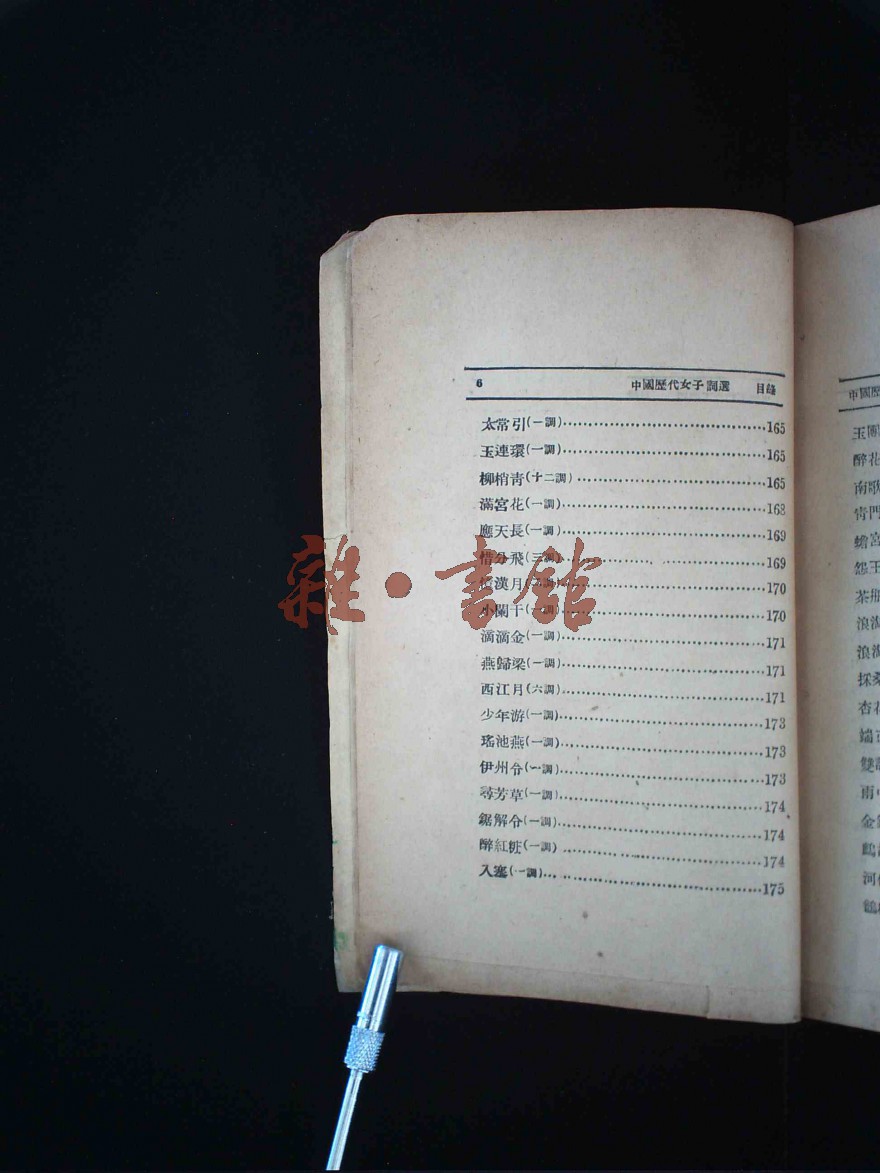 6 中國歷代女子詞選 目錄
太常引(一調)……165
玉連環(一調)……165
柳梢青(十二調)……165
滿宮花(一調)……168
應天長(一調)……169
惜分飛(三調)……169
漢月……170
小闌干(一調)……170
滴滴金(一調)……171
燕歸梁(一調)……171
西江月(六調)……171
少年游(一調)……173
瑤池燕(一調)……173
伊州令(一調)……173
尋芳草(一調)……174
鋸解令(一調)……174
醉紅妝(一調)……174
入塞(一調)……175
雜·書館
中國歷
醉花
南歌
青門
蟾宮
怨王
採桑
杏花